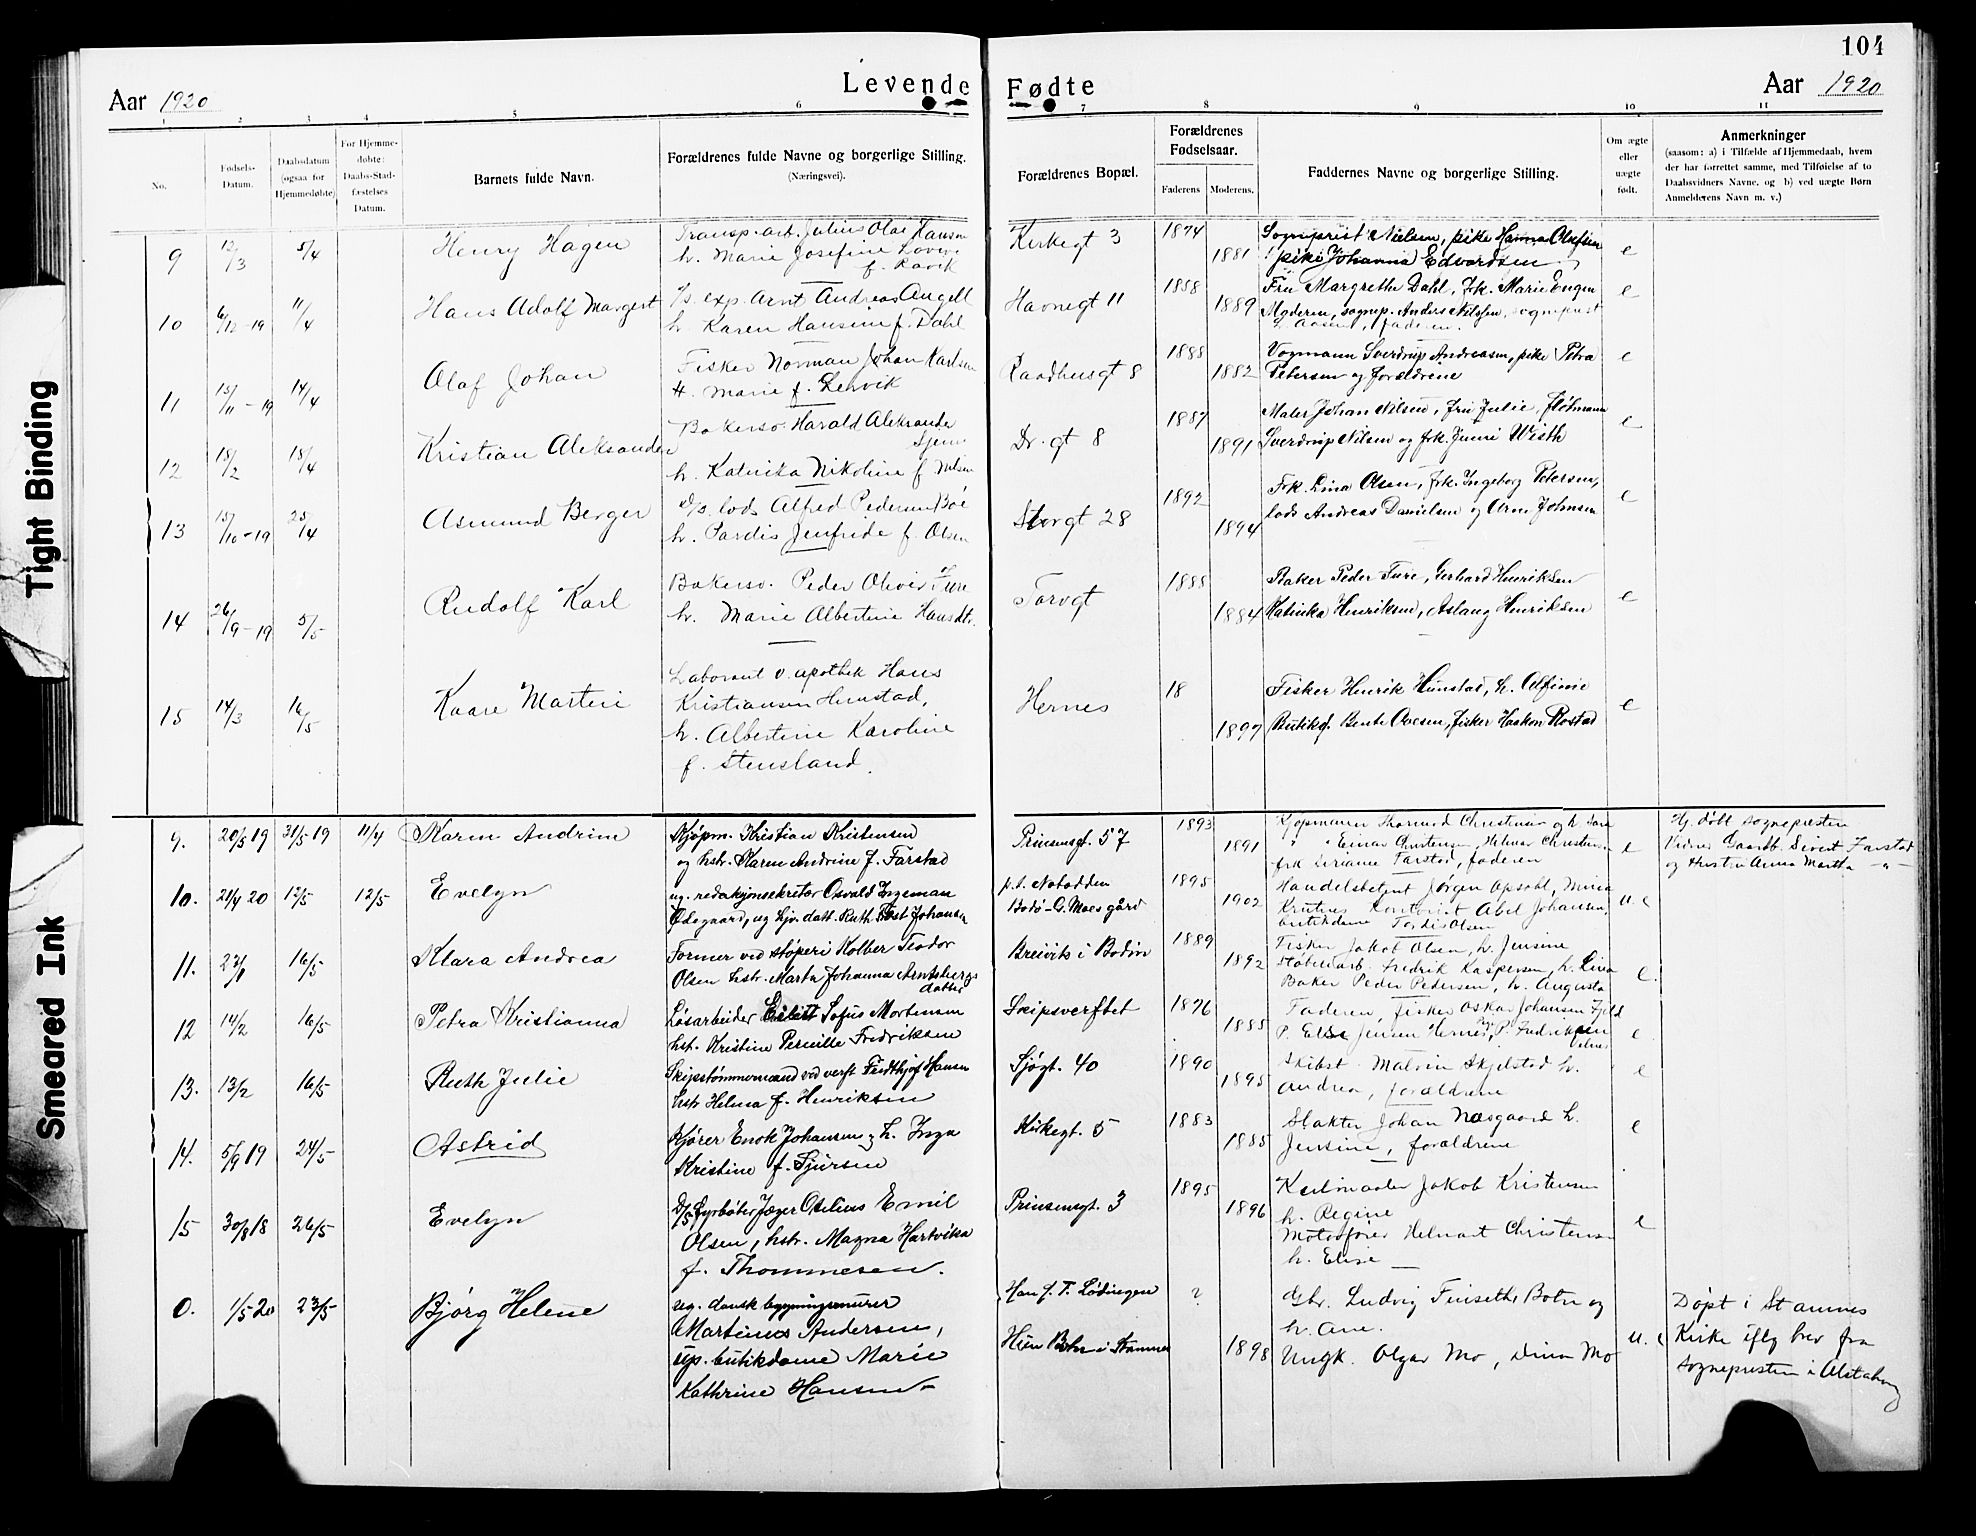 104
Levende
Fødte
Aar 1920
Aar 1920
1 2 3 4 5 6 7 8 9 10 11
No.
Fødsels-
Datum.
Daabsdatum
(ogsaa for
Hjemmedøbte)
For Hjemme-
døbte:
Daabs-Stad-
fæstelses
Datum.
Barnets fulde Navn.
Forældrenes fulde Navne og borgerlige Stilling.
(Næringsvei).
Forældrenes Bopæl.
Forældrenes
Fødselsaar.
Faderens.
Moderens.
Faddernes Navne og borgerlige Stilling.
Om ægte
eller
uægte
født.
Anmerkninger
(saasom: a) i Tilfælde af Hjemmedaab, hvem
der har forrettet samme, med Tilføielse af to
Daabsvidners Navne. og b) ved uægte Børn
Anmelderens Navn m. v.)
9 12/3 5/4 Henry Hagen
Transp.arb. Julius Olai Hanson
h. Marie Josefine
f. Ravik
Kirkegt 3 1874 1881
Sogneprest Nielsen, pike Hanna Olufsen
pike Johanna Edvardsen
e
10 6/12-19 11/4 Hans Adolf Margert
D/s. exp. Arnt Andreas Angell
h. Karen Hansine f. Dahl
Havnegt 11 1858 1889
Fru Margrethe Dahl, frk. Marie Engen
Moderen, sognep. Anders Nilssen, sogneprest
faderen.
e
11 15/11-19 14/4 Olaf Johan
Fisker Norman Johan Karlsen
H. Marie f. Lervik
Raadhusgt 8 1888 1882
Vognmann Sverdrup Andreasen, pike Petra
Petersen og forældrene
e
12 18/2 18/4 Kristian Aleksander
Bakersv. Harald Aleksander
h. Katinka Nikoline f. Nilsen
Dr. gt 8 1887 1891
Maler Johan Nilsen, fru Julie,
Sverdrup Nilsen og frk. Jenni Wisth
e
13 15/10-19 25/4 Asmund Berger
D/s. lods Alfred Pedersen Bøe
h. Pardis Jenfride f. Olsen
Storgt 28 1892 1894
Frk. Lina Olsen, frk. Ingeborg Petersen,
lods Andreas Danielsen og Arne Johnsen
e
14 26/9-19 5/5 Rudolf Karl
Bakersv. Peder Oliver Ture
h. Marie Albertine Hansdtr.
Torvgt 1888 1884
Baker Peder Ture, Gerhard Henriksen
Katinka Henriksen, Aslaug Henriksen
e
15 14/3 16/5 Kaare Martin
Laborant v. apothek Hans
Kristiansen Hunstad,
h. Albertine Karoline
f. Stensland.
Hernes 18 1897
Fisker Henrik Hunstad, h. Alfine
Butikd. Bente Ovesen, fisker Haakon Rostad
e
9. 20/5 19 31/5 19 11/4 Karen Andrine
Kjøpm. Kristian Kristensen
og hstr. Karen Andrine f. Farstad
Prinsensgt. 57 1893 1891
Kjøpmannen Thormod Christensen og h. Sara
" " Einar Christensen, Hilmar Christensen
frk. Sirianne Farstad, faderen
e
Hj. døbt sognepresten
Vidner Gaardb. Sivert Farstad
og Hustru Anna Martha -"-
10. 21/4 20 12/5 12/5 Evelyn
ug. redaksjonsekretær Osvald Ingeman
Ødegaard, ug hjv. datt. Ruth Johansen
p.t. Notodden
Bodø - G. Moes gård
1895 1902
Handelsbetjent Jørgen Opsahl, Minia
Knutsen Kontorist Abel Johansen,
butikdame Tordis Olsen
u.e
11. 23/1 16/5 Klara Andrea
Former ved støperi Kolber Teodor
Olsen hstr. Marta Johanna Arntsbergs
datter
Breivik i Bodin 1889 1892
Fisker Jakob Olsen, h. Jensine
Støberiarb. Fredrik Kaspersen, h. Lina
Baker Peder Pedersen, h. Augusta
e.
12 14/2 16/5 Petra Kristianna
Løsarbeider Eilert Sofus Mortensen
hstr. Kristine Pernille Fredriksen
Skipsverftet 1876 1885
Faderen, fisker Oskar Johansen Fjeld
P. Else Jensen Hernes, P. Fredriksen
e
13. 13/2 16/5 Ruth Julie
Skipstømmermand ved verft Fridthjof Hansen
hstr Helma f. Henriksen
Sjøgt. 40 1890 1895
Skibst. Malvin Skjelstad h.
Andrea, forældrene
e
14. 5/9 19 24/5 Astrid
Kjører Enok Johansen og h. Inga
Kristine f. Sjursen
Kirkegt. 5 1883 1885
Slakter Johan Næsgaard h.
Jensine, forældrene
e
15 30/8 18 26/5 Evelyn
D/S fyrbøter Jæger Otelius Emil
Olsen, hstr. Magna Hartvika
f. Thommesen.
Prinsensgt. 3 1895 1896
Jakob Kristensen
h. Regine
Motorfører Helmart Christensen
h. Elise
e
0. 1/5 20 23/5 Bjørg Helene
ug. dansk bygningsmurer
Martinus Andersen,
up. butikdame Marie
Kathrine Hansen
Han f. T. Lødingen
Hun Botn i Stamnes
? 1898
Gbr. Ludvig Finseth, Botn og
h. Ane.
Ungk. Olgar Mo, Dina Mo
u.e
Døpt i Stamnes
Kirke iflg brev fra
sognepresten i Alstahaug
Tight Binding
Smeared Ink